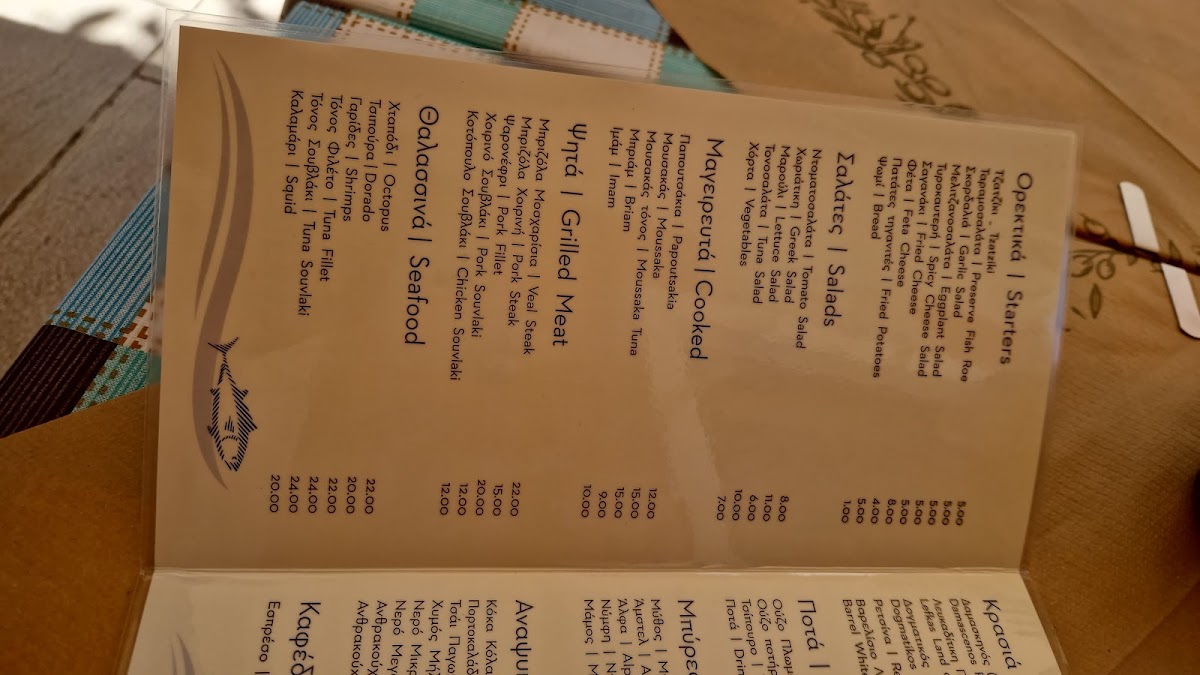 Ορεκτικά | Starters
Τζατζίκι - Tzatziki 5.00
Ταραμοσαλάτα | Preserve Fish Roe 5.00
Σκορδαλιά | Garlic Salad 5.00
Μελιτζανοσαλάτα | Eggplant Salad 5.00
Τυροκαυτερή | Spicy Cheese Salad 5.00
Σαγανάκι | Fried Cheese 8.00
Φέτα | Feta Cheese 4.00
Πατάτες τηγανιτές | Fried Potatoes 5.00
Ψωμί | Bread 1.00
Σαλάτες | Salads
Ντοματοσαλάτα | Tomato Salad 8.00
Χωριάτικη | Greek Salad 11.00
Μαρούλι | Lettuce Salad 6.00
Τονοσαλάτα | Tuna Salad 10.00
Χόρτα | Vegetables 7.00
Μαγειρευτά | Cooked
Παπουτσάκια | Papoutsakia 12.00
Μουσακάς | Moussaka 15.00
Μουσακάς τόνος | Moussaka Tuna 15.00
Μπριάμ | Briam 9.00
Ιμάμ | Imam 10.00
Ψητά | Grilled Meat
Μπριζόλα Μοσχαρίσια | Veal Steak 22.00
Μπριζόλα Χοιρινή | Pork Steak 15.00
Ψαρονέφρι | Pork Fillet 20.00
Χοιρινό Σουβλάκι | Pork Souvlaki 12.00
Κοτόπουλο Σουβλάκι | Chicken Souvlaki 12.00
Θαλασσινά | Seafood
Χταπόδι | Octopus 22.00
Τσιπούρα | Dorado 20.00
Γαρίδες | Shrimps 22.00
Τόνος Φιλέτο | Tuna Fillet 24.00
Τόνος Σουβλάκι | Tuna Souvlaki 24.00
Καλαμάρι | Squid 20.00
Κρασιά
Δαμασκηνός
Damascenos
Λευκαδίτικη
Lefkas Land
Δογματικός
Dogmatikos
Ρετσίνα | Re
Βαρελίσιο Λ
Barrel White
Ποτά |
Ούζο Πλωμ
Ούζο ποτήρ
Τσίπουρο |
Ποτά | Drin
Μπύρες
Μύθος | M
Άμστελ | A
Άλφα | Alp
Νύμφη | N
Μάμος | M
Αναψυ
Κόκα Κόλα
Πορτοκαλάδ
Τσάι Παγω
Χυμός Μήλ
Νερό Μεγ
Νερό Μικρό
Ανθρακούχ
Ανθρακούχ
Καφέδ
Εσπρέσο |